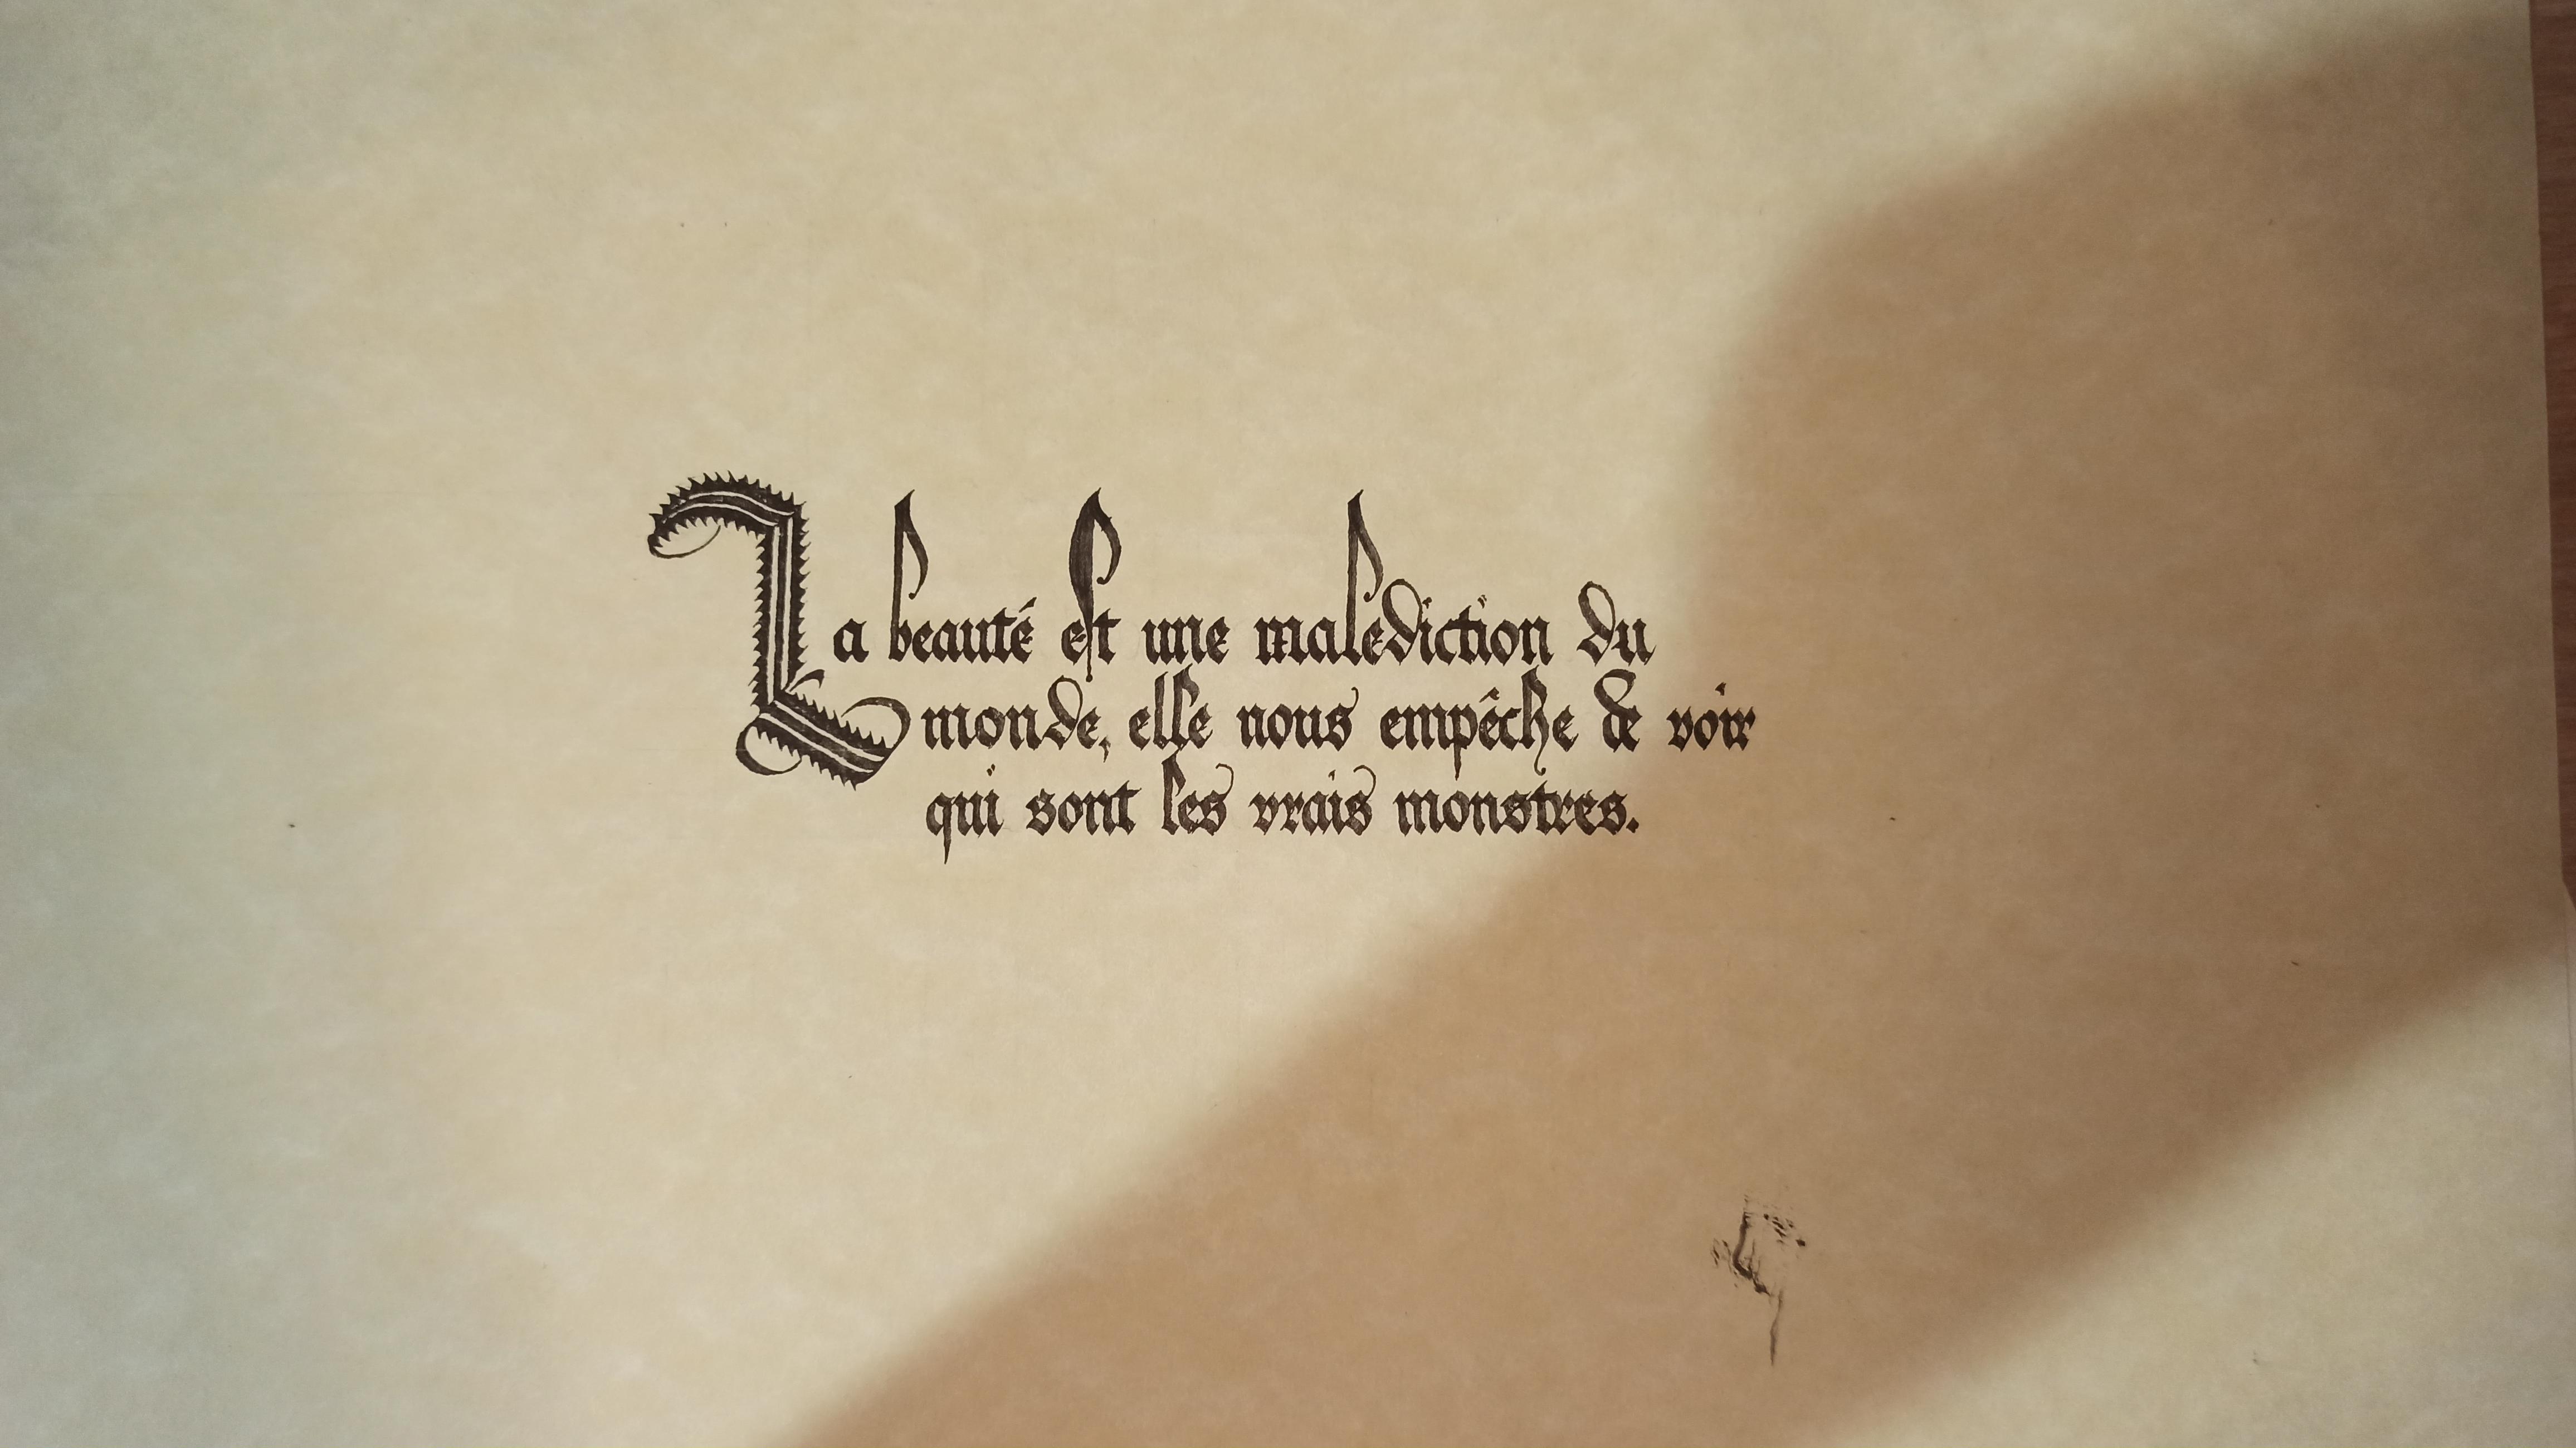 La beauté est une malediction du
monde, elle nous empêche de voir
qui sont les vrais monstres.